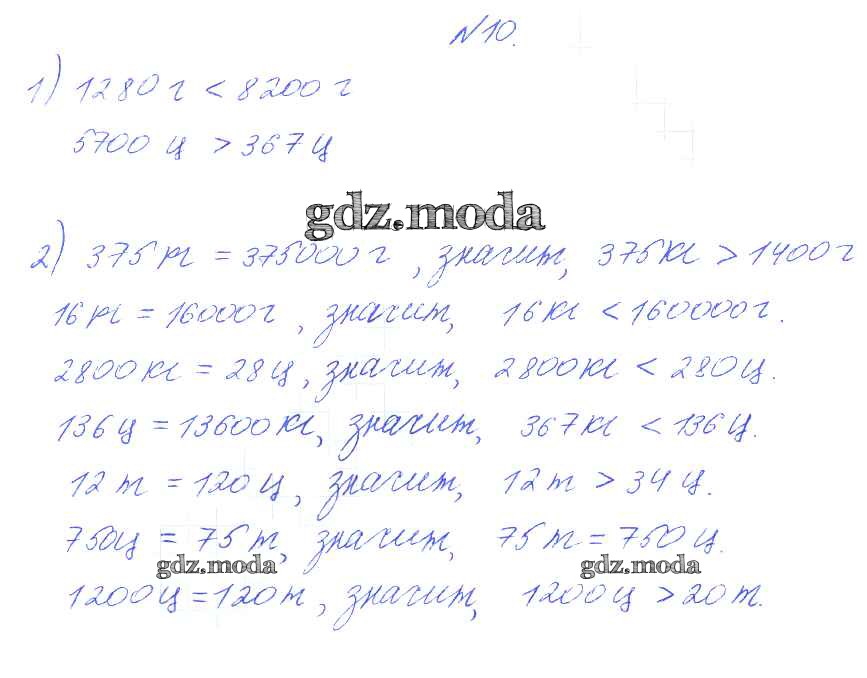 №10.
1) 1280 г < 8200 г
5700 ц > 367 ц
gdz.moda
2) 375 кг = 375000 г, значит, 375 кг > 1400 г
16 кг = 16000 г, значит, 16 кг < 160000 г.
2800 кг = 28 ц, значит, 2800 кг < 280 ц.
136 ц = 13600 кг, значит, 367 кг < 136 ц.
12 т = 120 ц, значит, 12 т > 34 ц.
750 ц = 75 т, значит, 75 т = 750 ц.
gdz.moda gdz.moda
1200 ц = 120 т, значит, 1200 ц > 20 т.